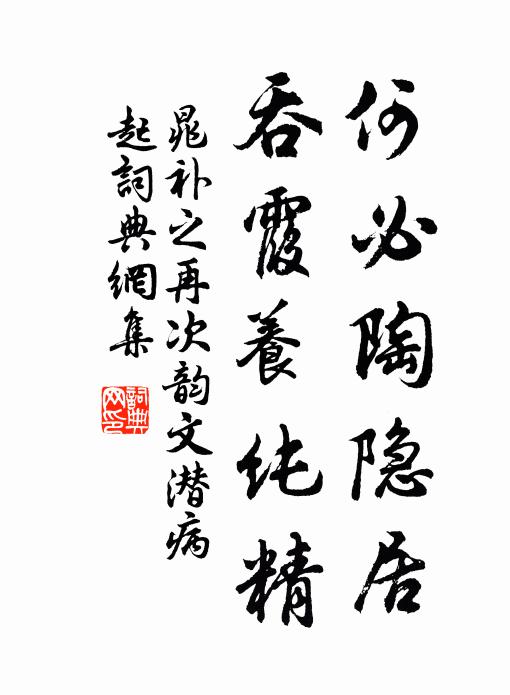 何必陶隐居
吞霞養纯精
晁补之再次韵文潜病
起詞典網集
詞典网印